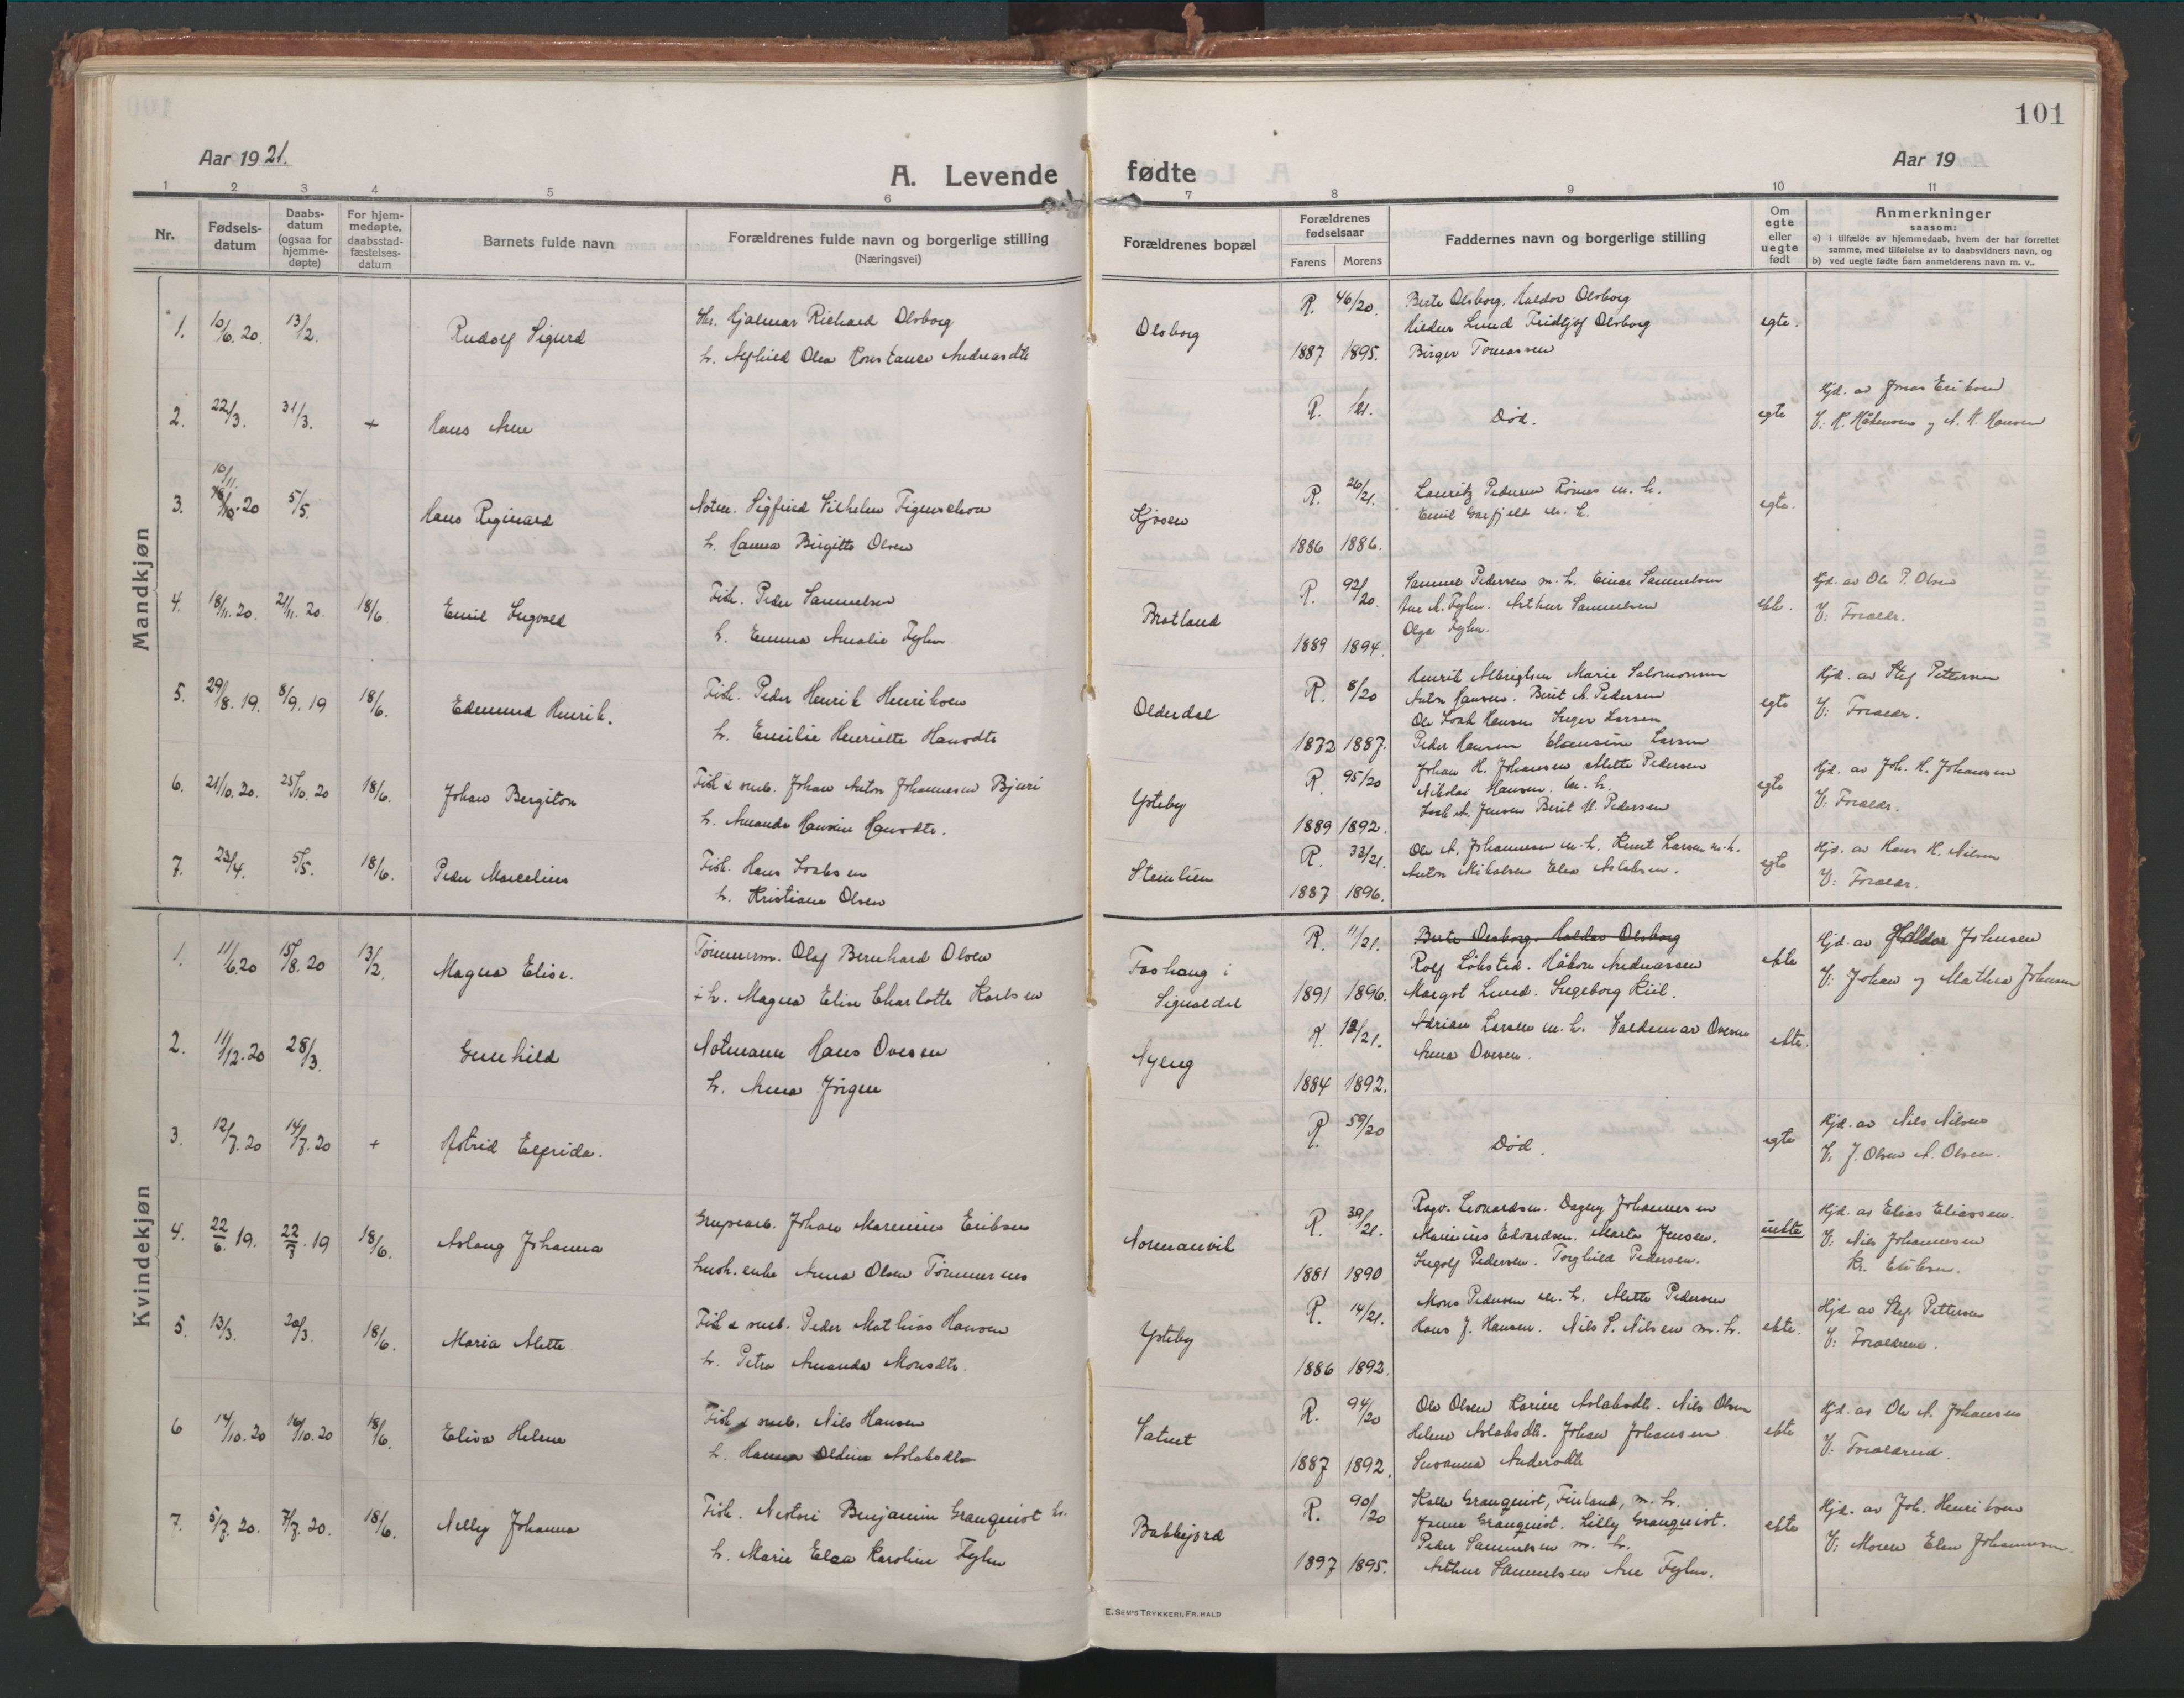 101
Aar 1921.
A. Levende fødte
Aar 19
1 2 3 4 5 6 7 8 9 10 11
Nr.
Fødsels-
datum
Daabs-
datum
(ogsaa for
hjemme-
døpte)
For hjem-
medøpte,
daabsstad-
fæstelses-
datum
Barnets fulde navn
Forældrenes fulde navn og borgerlige stilling
(Næringsvei)
Forældrenes bopæl
Forældrenes
fødselsaar
Farens Morens
Faddernes navn og borgerlige stilling
Om
egte
eller
uegte
født
Anmerkninger
saasom:
a) i tilfælde av hjemmedaab, hvem der har forrettet
samme, med tilføielse av to daabsvidners navn, og
b) ved uegte fødte barn anmelderens navn m. v..
Mandkjøn
1. 10/6.20. 13/2. Rudolf Sigurd
Hjalmar Richard Olsborg
h. Alfhild Olea Konstance Andreasdtr
Olsborg
R. 46/20.
1887 1895.
Berte Olsborg. Haldor Olsborg
Hildur Lund Fridtjof Olsborg
Birger Tomassen
egte.
2. 22/3. 31/3. + Hans Arne
R. /21.
Død.
egte
Hjd. av Jonas Eriksen
V: H. Håkensen og A. H. Hansen
3. 10/11. 20 5/5. Hans Reginard
Notm. Sigfried Vilhelm Figenschou
h. Hanna Birgitte Olsen
Kjosen
R. 26/21.
1886 1886.
Lauritz Pedersen Römes m. h.
Emil Garfjeld m. h.
egte.
4. 18/11.20. 21/11.20. 18/6. Emil Ingvald
Fisk. Peder Samuelsen
h. Emma Amalie Fyhn
Bratland
R. 92/20.
1889 1894.
Samuel Pedersen m. h. Einar Samuelsen
Ane A. Fyhn. Arthur Samuelsen
Olga Fyhn.
ekte.
Hjd. av Ole P. Olsen
V: Foraeldr.
5. 29/8.19. 8/9.19 18/6. Edmund Henrik.
Fisk. Peder Henrik Henriksen
h. Emilie Henriette Hansdtr
Olderdal
R. 8/20
1872 1887.
Henrik Albrigtsen Marie Salomonsen
Anton Hansen. Berit A. Pedersen
Ole Isak Hansen Inger Larsen
Peder Hansen Clausine Larsen
egte
Hjd. av Stef Pettersen
V: Foraeldr.
6. 21/10.20. 25/10.20 18/6. Johan Bergiton
Fisk & smb. Johan Anton Johannesen Bjuri
h. Amanda Hansine Hansdtr.
Ysteby
R. 95/20
1889 1892.
Johan H. Johansen Alette Pedersen
Nikolai Hansen. m. h.
Isak A. Jensen Berit H. Pedersen
egte
Hjd. av Joh. H. Johansen
V: Foraeldr.
7. 23/4. 5/5. 18/6. Peder Marcelius
Fisk. Hans Isaksen
h. Kristiane Olsen
Steinlien
R. 33/21.
1887 1896.
Ole A. Johannesen m. h. Knut Larsen m. h.
Anton Mikalsen Elea Aslaksen.
egte
Hjd. av Hans H. Nilsen
V: Foraeldr.
Kvindekjøn
1. 11/6.20 15/8.20 13/2. Magna Elise.
Tömmerm. Olaf Bernhard Olsen
+h. Magna Elise Charlotte Karlsen
Foshaug i
Signaldal
R. 11/21.
1891 1896.
Berte Olsborg. Haldor Olsborg
Rolf Löksted. Håkon Andreassen
Margot Lund. Ingeborg Kiil.
ekte
Hjd. av Haldor Johnsen
V: Johan og Mathea Johnsen
2. 11/12.20 28/3. Gunhild
Notmann Hans Ovesen
h. Anna Jörgine
Nyeng
R. 12/21.
1884 1892.
Adrian Larsen m. h. Valdemar Ovesen
Anna Ovesen.
ekte.
3. 12/7.20 14/7.20 + Astrid Elfrida.
R. 59/20
Død.
egte
Hjd. av Nils Nilsen
V: J. Olsen A. Olsen.
4. 22/6.19. 22/7.19 18/6. Aslaug Johanna
Grupearb. Johan Marenius Eriksen
Enke Anna Olsen Tömmernes
Normanvik
R. 39/21.
1881 1890
Ragv. Leonardsen. Dagny Johannesen
Marinius Edvardsen. Marta Jensen.
Ingolf Pedersen. Torghild Pedersen.
uekte
Hjd. av Elias Eliassen.
V: Nils Johannesen
Kr. Eriksen.
5. 13/3. 20/3. 18/6. Maria Alette
Fisk & smb. Peder Mathias Hansen
h. Petra Amanda Monsdtr.
Ysteby
R. 14/21.
1886 1892.
Mons Pedersen m. h. Alette Pedersen
Hans J. Hansen. Nils S. Nilsen m. h.
ekte.
Hjd. av Stef. Pettersen
V: Foraeldrene.
6 14/10.20 16/10.20 18/6. Elisa Helene
Fisk & smb. Nils Hansen
h. Hanna Oldine Aslaksdtr
Vatnet
R. 94/20
1887 1892.
Ole Olsen Karine Aslaksdtr. Nils Olsen
Helene Aslaksdtr. Johan Johansen
Susanna Andersdtr
ekte
Hjd. av Ole A. Johansen
V: Foraeldrene.
7. 5/7.20. 7/7.20. 18/6. Nelly Johanna
Fisk. Nestori Benjamin Granquist
h. Marie Elea Karoline Fyhn
Bakkejord
R. 90/20
1897 1895.
Kalle Granquist, Finland, m. h.
Granquist. Lilly Granquist.
Peder Samuelsen m. h.
Arthur Samuelsen Ane Fyhn.
ekte
Hjd. av Joh. Henriksen
V: Moren Elen Johannesen.
E. SEM'S TRYKKERI, FR. HALD